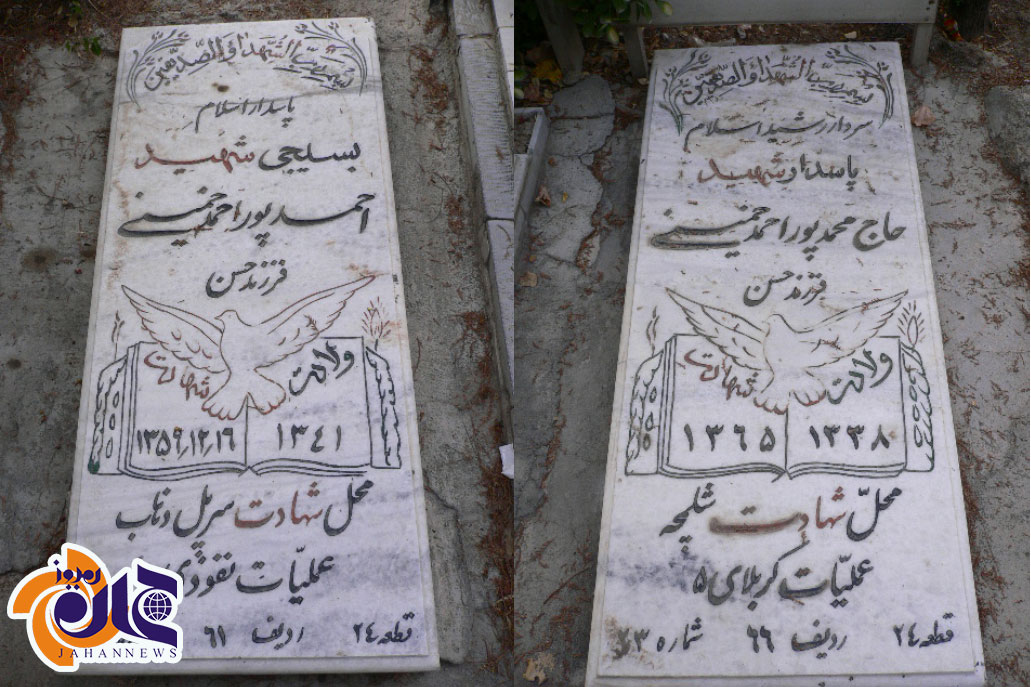 الشهداء و الصدیقین
پاسدار اسلام
بسیجی شهید
احمد پوراحمد خمینی
فرزند حسن
ولادت شهادت
۱۳۴۱ ۱۳۵۹٫۱۲٫۱۶
محل شهادت سرپل ذهاب
عملیات نفوذی
قطعه ۲۴ ردیف ۶۱
الشهداء و الصدیقین
سردار رشید اسلام
پاسدار شهید
حاج محمد پوراحمد خمینی
فرزند حسن
ولادت شهادت
۱۳۳۸ ۱۳۶۵
محلّ شهادت شلمچه
عملیّات کربلای ۵
قطعه ۲۴ ردیف ۶۶ شماره
جهان امروز
JAHANNEWS